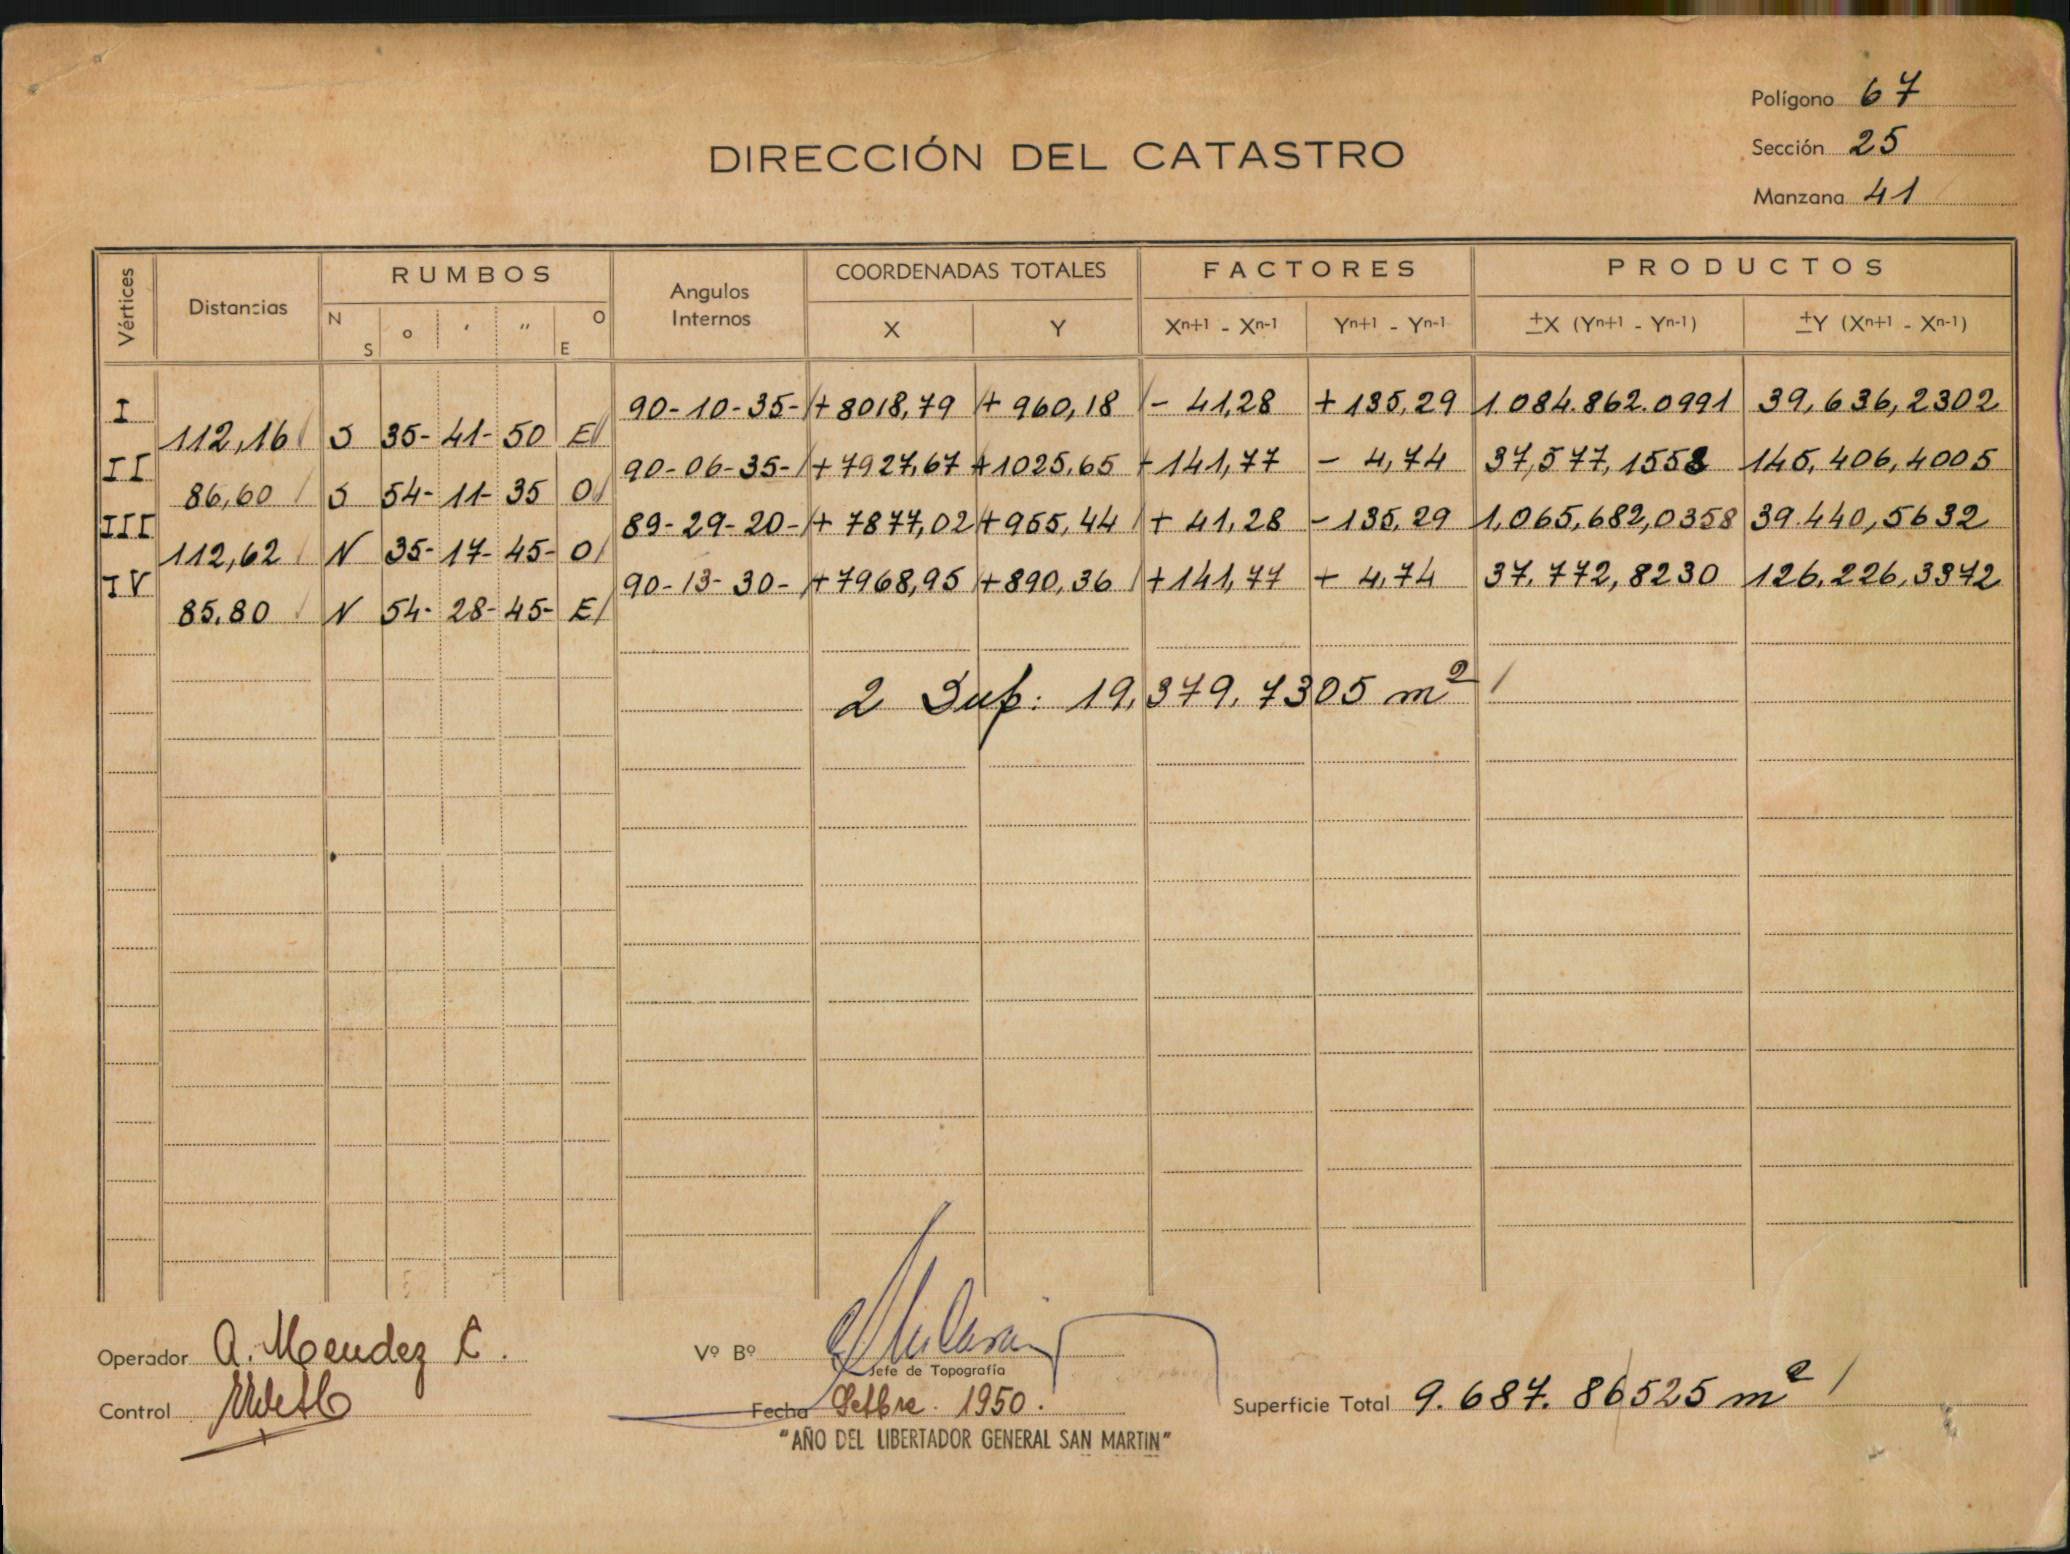 Polígono 67
DIRECCIÓN DEL CATASTRO
Sección 25
Manzana 41
Vértices Distancias RUMBOS Angulos Internos COORDENADAS TOTALES FACTORES PRODUCTOS
N S o ' " O E X Y Xn+1 - Xn-1 Yn+1 - Yn-1 ±X (Yn+1 - Yn-1) ±Y (Xn+1 - Xn-1)
I 90-10-35- +8018,79 + 960,18 - 41,28 +135,29 1084.862.0991 39,636,2302
112,16 S 35- 41- 50 E
II 90-06-35- +7927,67 +1025,65 +141,77 - 4,74 37,577,1558 145,406,4005
86,60 S 54- 11- 35 O
III 89-29-20- + 7877,02 +955,44 + 41,28 -135,29 1,065,682,0358 39.440,5632
112,62 N 35- 17- 45- O
IV 90-13-30- +7968,95 +890,36 +141,77 + 4,74 37.772,8230 126,226,3372
85,80 N 54- 28- 45- E
2 Sup: 19,379,7305 m²
Operador A. Mendez C.
Vº Bº
Jefe de Topografía
Control
Fecha Setbre. 1950.
Superficie Total 9.687.86525 m²
"AÑO DEL LIBERTADOR GENERAL SAN MARTIN"